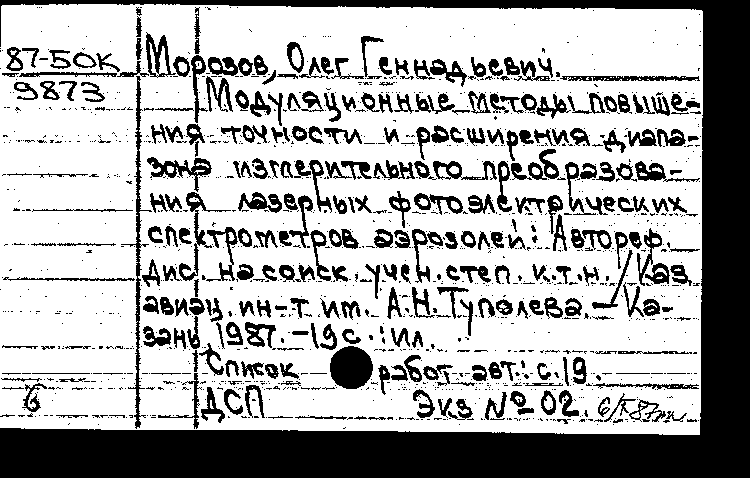 87-50К Морозов, Олег Геннадьевич.
9873 Модуляционные методы повыше-
ния точности и расширения диапа-
зона измерительного преобразова-
ния лазерных фотоэлектрических
спектрометров аэрозолей: Автореф.
дис. на соиск. учен. степ. к.т.н. / Каз.
авиац. ин-т им. А.Н. Туполева. — Ка-
зань, 1987. - 19 с. : ил.
Список работ авт.: с. 19.
б ДСП Экз № 02.